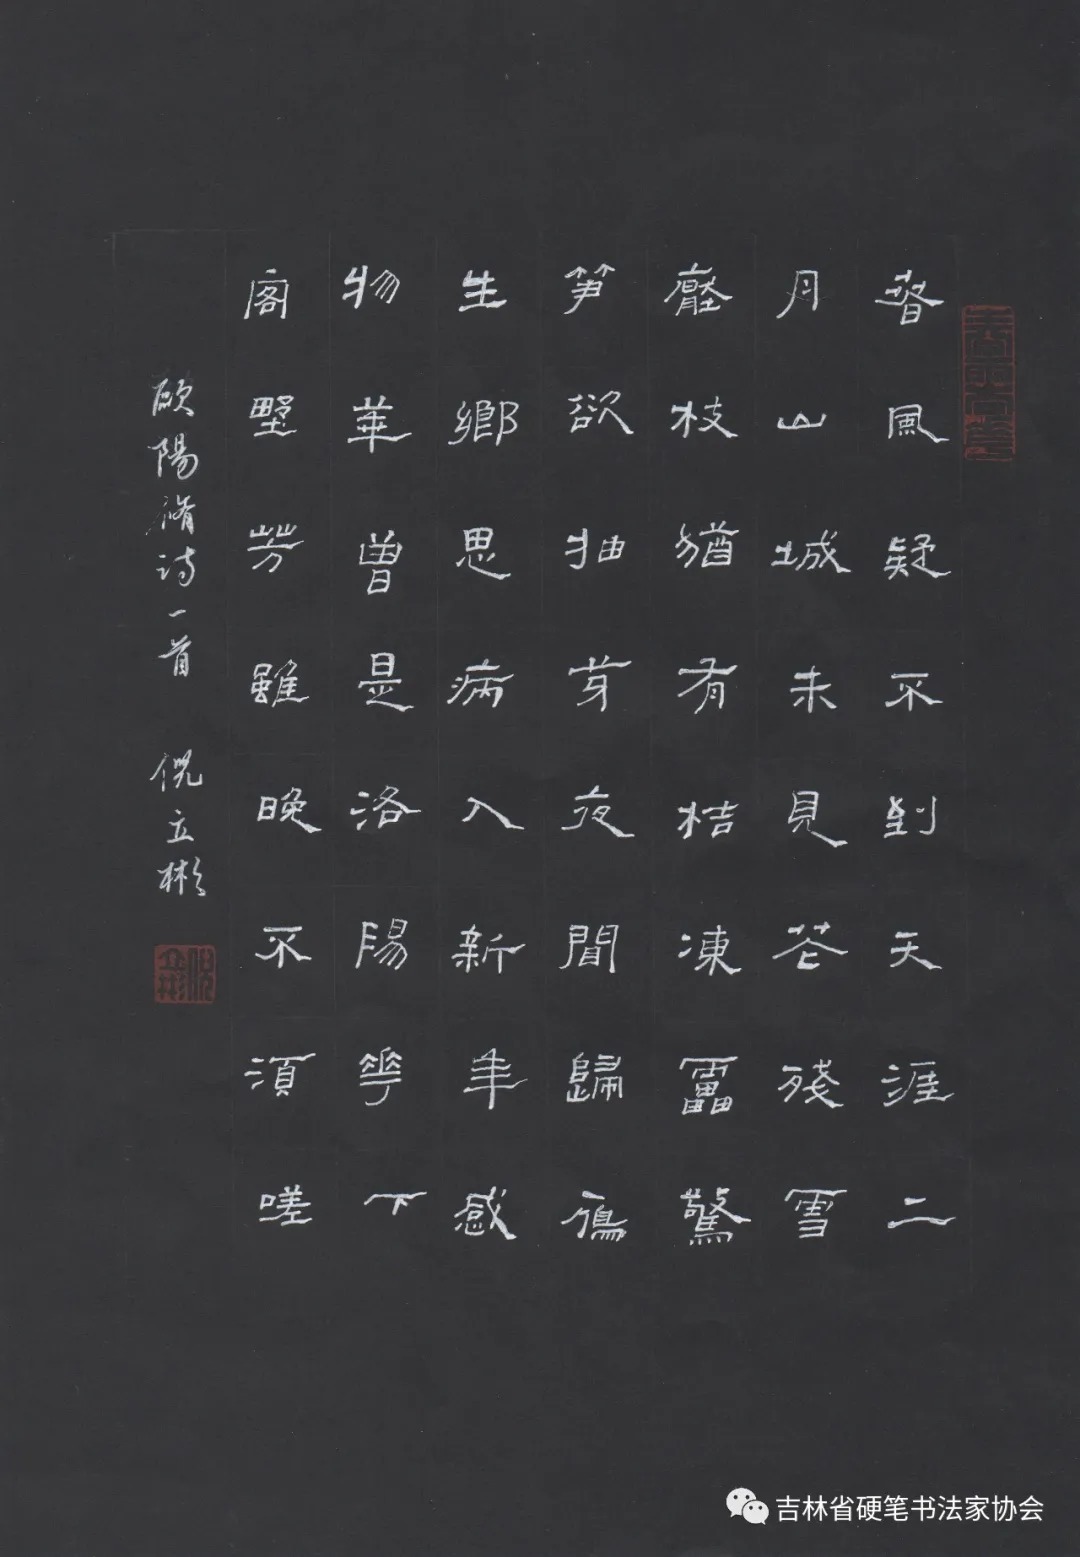 春風疑不到天涯二
月山城未見花殘雪
壓枝猶有桔凍靁驚
笋欲抽芽夜聞歸鴈
生鄉思病入新年感
物華曾是洛陽花下
客野芳雖晚不須嗟
歐陽脩诗一首 倪立彬
倪立彬
吉林省硬笔书法家协会